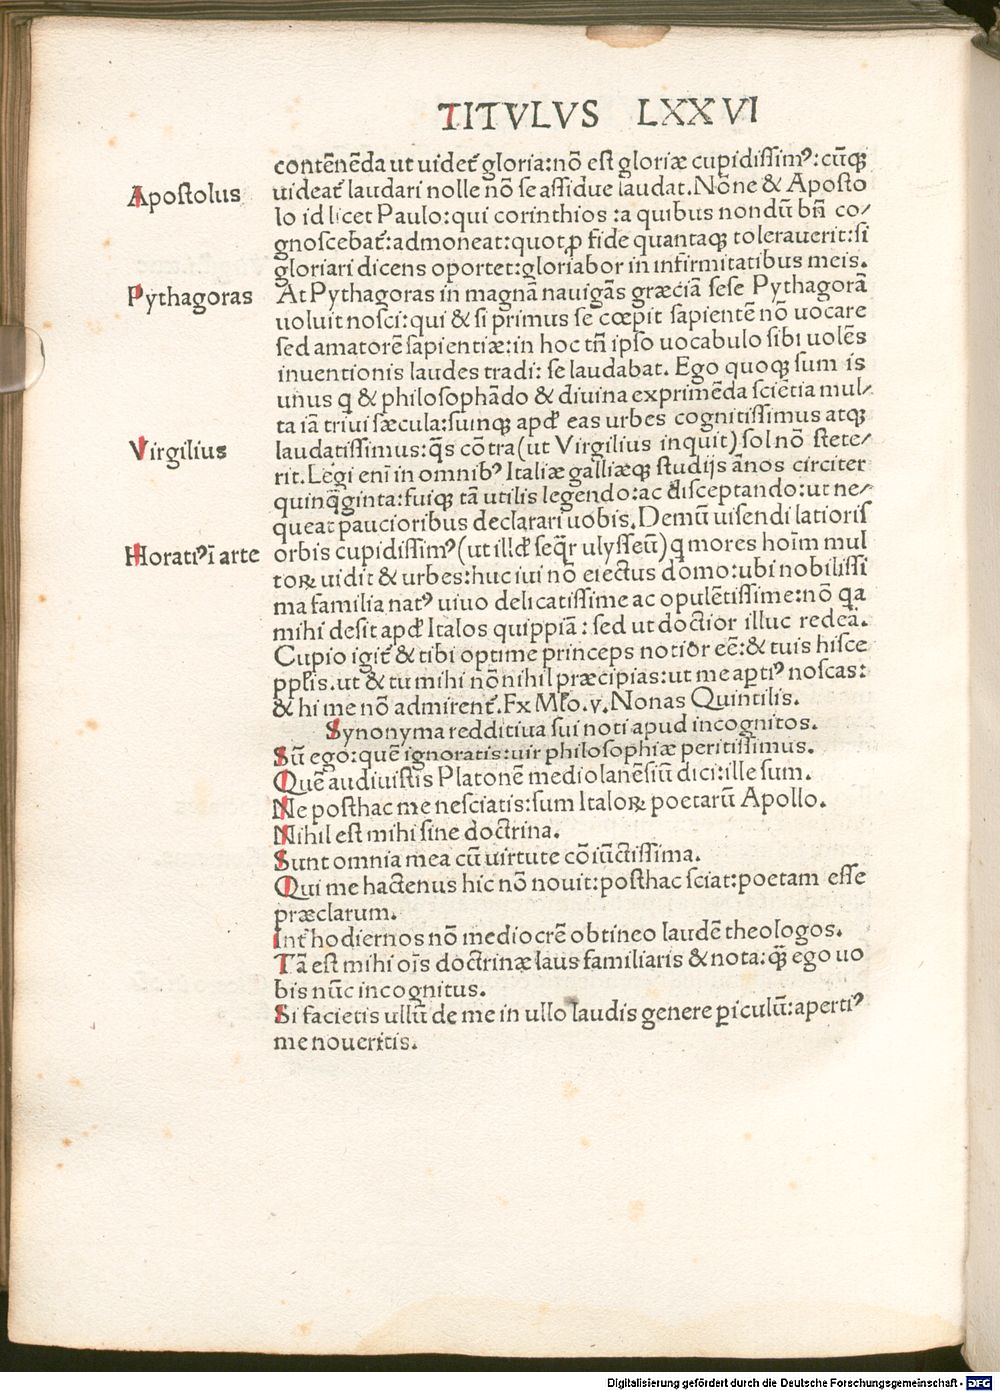 TITVLVS LXXVI
contēnēda ut uidet᷑ gloria:nō est gloriæ cupidissimꝰ:cūqꝫ
Apostolus
uideat᷑ laudari nolle nō se assidue laudat.Nōne & Aposto
lo id licet Paulo:qui corinthios :a quibus nondū bn̄ co/
gnoscebat᷑:admoneat:quot ꝓ fide quantaqꝫ tolerauerit:si
gloriari dicens oportet:gloriabor in infirmitatibus meis.
Pythagoras
At Pythagoras in magnā nauigās græciā sese Pythagorā
uoluit nosci:qui & si primus se cœpit sapientē nō uocare
sed amatorē sapientiæ:in hoc tn̄ ipso uocabulo sibi uolēs
inuentionis laudes tradi: se laudabat. Ego quoqꝫ sum is
unus q & philosophādo & diuina exprimēda sciētia mul/
ta iā triui sæcula:suinqꝫ apd᷑ eas urbes cognitissimus atqꝫ
Virgilius
laudatissimus:q̄s cōtra(ut Virgilius inquit)sol nō stete/
rit.Legi enī in omnibꝰ Italiæ galliæqꝫ studijs ānos circiter
quinq̄ginta:fuiqꝫ tā utilis legendo:ac disceptando:ut ne/
queat paucioribus declarari uobis.Demū uisendi latioris
Horatiꝰ ī arte
orbis cupidissimꝰ(ut illd᷑ seq̄r ulysseū)q mores hoīm mul
toꝝ uidit & urbes:huc iui nō eiectus domo:ubi nobilissi
ma familia natꝰ uiuo delicatissime ac opulētissime:nō qa
mihi desit apd᷑ Italos quippiā: sed ut doctior illuc redeā.
Cupio igit᷑ & tibi optime princeps notior eē:& tuis hisce
pplis.ut & tu mihi nōnihil præcipias:ut me aꝑtiꝰ noscas:
& hi me nō admirent᷑.Ex Mło.v.Nonas Quintilis.
Synonyma redditiua sui noti apud incognitos.
Sū ego:quē ignoratis:uir philosophiæ peritissimus.
Quē audiuistis Platonē mediolanēsiū dici:ille sum.
Ne posthac me nesciatis:sum Italoꝝ poetarū Apollo.
Nihil est mihi sine doctrina.
Sunt omnia mea cū uirtute cōiūctissima.
Qui me hactenus hic nō nouit:posthac sciat:poetam esse
præclarum.
Int᷑ hodiernos nō mediocrē obtineo laudē theologos.
Tā est mihi oīs doctrinæ laus familiaris & nota:qꝫ̄ ego uo
bis nūc incognitus.
Si facietis ullū de me in ullo laudis genere ꝑiculū:apertiꝰ
me noueritis.
Digitalisierung gefördert durch die Deutsche Forschungsgemeinschaft - DFG